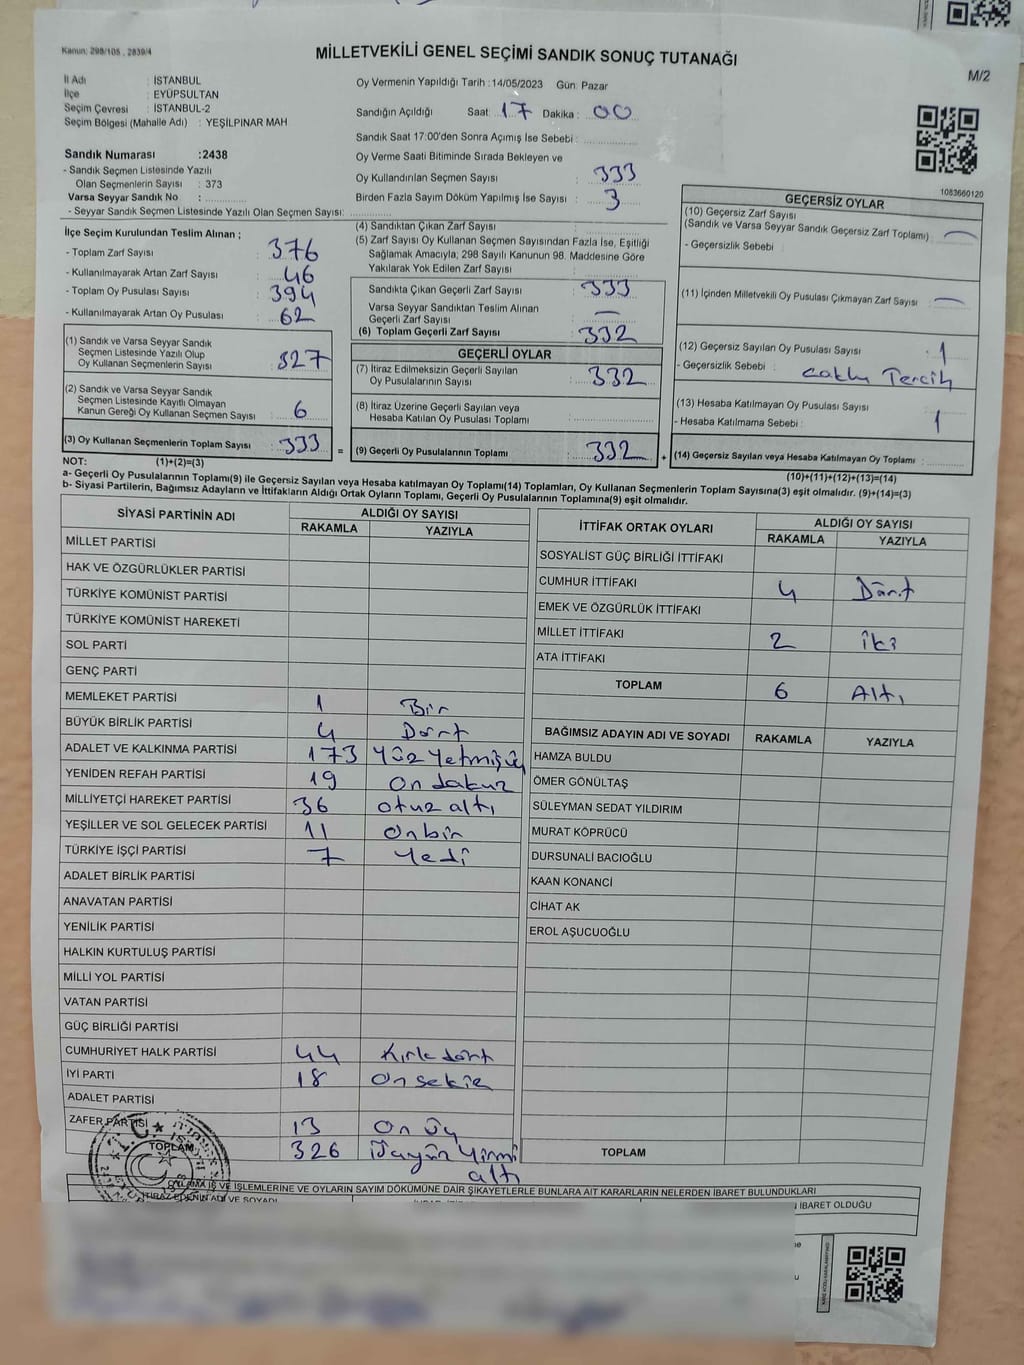 Kanun: 298/105 , 2839/4
MİLLETVEKİLİ GENEL SEÇİMİ SANDIK SONUÇ TUTANAĞI
M/2
İl Adı : İSTANBUL
İlçe : EYÜPSULTAN
Seçim Çevresi : İSTANBUL-2
Seçim Bölgesi (Mahalle Adı) : YEŞİLPINAR MAH
Oy Vermenin Yapıldığı Tarih :14/05/2023 Gün: Pazar
Sandığın Açıldığı Saat: 17 Dakika : 00
Sandık Saat 17:00'den Sonra Açımış İse Sebebi :
Sandık Numarası :2438
- Sandık Seçmen Listesinde Yazılı
Olan Seçmenlerin Sayısı : 373
Varsa Seyyar Sandık No :
- Seyyar Sandık Seçmen Listesinde Yazılı Olan Seçmen Sayısı:
Oy Verme Saati Bitiminde Sırada Bekleyen ve
Oy Kullandırılan Seçmen Sayısı : 333
Birden Fazla Sayım Döküm Yapılmış İse Sayısı : 3
1083660120
İlçe Seçim Kurulundan Teslim Alınan ;
- Toplam Zarf Sayısı : 376
- Kullanılmayarak Artan Zarf Sayısı : 46
- Toplam Oy Pusulası Sayısı : 394
- Kullanılmayarak Artan Oy Pusulası : 62
(1) Sandık ve Varsa Seyyar Sandık
Seçmen Listesinde Yazılı Olup
Oy Kullanan Seçmenlerin Sayısı : 327
(2) Sandık ve Varsa Seyyar Sandık
Seçmen Listesinde Kayıtlı Olmayan
Kanun Gereği Oy Kullanan Seçmen Sayısı : 6
(3) Oy Kullanan Seçmenlerin Toplam Sayısı : 333 =
(4) Sandıktan Çıkan Zarf Sayısı :
(5) Zarf Sayısı Oy Kullanan Seçmen Sayısından Fazla İse, Eşitliği
Sağlamak Amacıyla; 298 Sayılı Kanunun 98. Maddesine Göre
Yakılarak Yok Edilen Zarf Sayısı :
Sandıkta Çıkan Geçerli Zarf Sayısı : 333
Varsa Seyyar Sandıktan Teslim Alınan
Geçerli Zarf Sayısı : —
(6) Toplam Geçerli Zarf Sayısı : 332
GEÇERLİ OYLAR
(7) İtiraz Edilmeksizin Geçerli Sayılan
Oy Pusulalarının Sayısı : 332
(8) İtiraz Üzerine Geçerli Sayılan veya
Hesaba Katılan Oy Pusulası Toplamı :
(9) Geçerli Oy Pusulalarının Toplamı : 332 +
GEÇERSİZ OYLAR
(10) Geçersiz Zarf Sayısı
(Sandık ve Varsa Seyyar Sandık Geçersiz Zarf Toplamı) : —
- Geçersizlik Sebebi :
(11) İçinden Milletvekili Oy Pusulası Çıkmayan Zarf Sayısı : —
(12) Geçersiz Sayılan Oy Pusulası Sayısı : 1
- Geçersizlik Sebebi : Çoklu Tercih
(13) Hesaba Katılmayan Oy Pusulası Sayısı :
- Hesaba Katılmama Sebebi : 1
(14) Geçersiz Sayılan veya Hesaba Katılmayan Oy Toplamı :
NOT: (1)+(2)=(3)
(10)+(11)+(12)+(13)=(14)
a- Geçerli Oy Pusulalarının Toplamı(9) ile Geçersiz Sayılan veya Hesaba katılmayan Oy Toplamı(14) Toplamları, Oy Kullanan Seçmenlerin Toplam Sayısına(3) eşit olmalıdır. (9)+(14)=(3)
b- Siyasi Partilerin, Bağımsız Adayların ve İttifakların Aldığı Ortak Oyların Toplamı, Geçerli Oy Pusulalarının Toplamına(9) eşit olmalıdır.
SİYASİ PARTİNİN ADI ALDIĞI OY SAYISI
RAKAMLA YAZIYLA
MİLLET PARTİSİ
HAK VE ÖZGÜRLÜKLER PARTİSİ
TÜRKİYE KOMÜNİST PARTİSİ
TÜRKİYE KOMÜNİST HAREKETİ
SOL PARTİ
GENÇ PARTİ
MEMLEKET PARTİSİ 1 Bir
BÜYÜK BİRLİK PARTİSİ 4 Dört
ADALET VE KALKINMA PARTİSİ 173 Yüz Yetmişüç
YENİDEN REFAH PARTİSİ 19 On dokuz
MİLLİYETÇİ HAREKET PARTİSİ 36 otuz altı
YEŞİLLER VE SOL GELECEK PARTİSİ 11 Onbir
TÜRKİYE İŞÇİ PARTİSİ 7 Yedi
ADALET BİRLİK PARTİSİ
ANAVATAN PARTİSİ
YENİLİK PARTİSİ
HALKIN KURTULUŞ PARTİSİ
MİLLİ YOL PARTİSİ
VATAN PARTİSİ
GÜÇ BİRLİĞİ PARTİSİ
CUMHURİYET HALK PARTİSİ 44 Kırk dört
İYİ PARTİ 18 On sekiz
ADALET PARTİSİ
ZAFER PARTİSİ 13 On üç
TOPLAM 326 Üçyüz Yirmi
altı
İTTİFAK ORTAK OYLARI ALDIĞI OY SAYISI
RAKAMLA YAZIYLA
SOSYALİST GÜÇ BİRLİĞİ İTTİFAKI
CUMHUR İTTİFAKI 4 Dört
EMEK VE ÖZGÜRLÜK İTTİFAKI
MİLLET İTTİFAKI 2 iki
ATA İTTİFAKI
TOPLAM 6 Altı
BAĞIMSIZ ADAYIN ADI VE SOYADI RAKAMLA YAZIYLA
HAMZA BULDU
ÖMER GÖNÜLTAŞ
SÜLEYMAN SEDAT YILDIRIM
MURAT KÖPRÜCÜ
DURSUNALİ BACIOĞLU
KAAN KONANCİ
CİHAT AK
EROL AŞUCUOĞLU
TOPLAM
İŞLEMLERİNE VE OYLARIN SAYIM DÖKÜMÜNE DAİR ŞİKAYETLERLE BUNLARA AİT KARARLARIN NELERDEN İBARET BULUNDUKLARI
İTİRAZ EDENİN ADI VE SOYADI
İBARET OLDUĞU